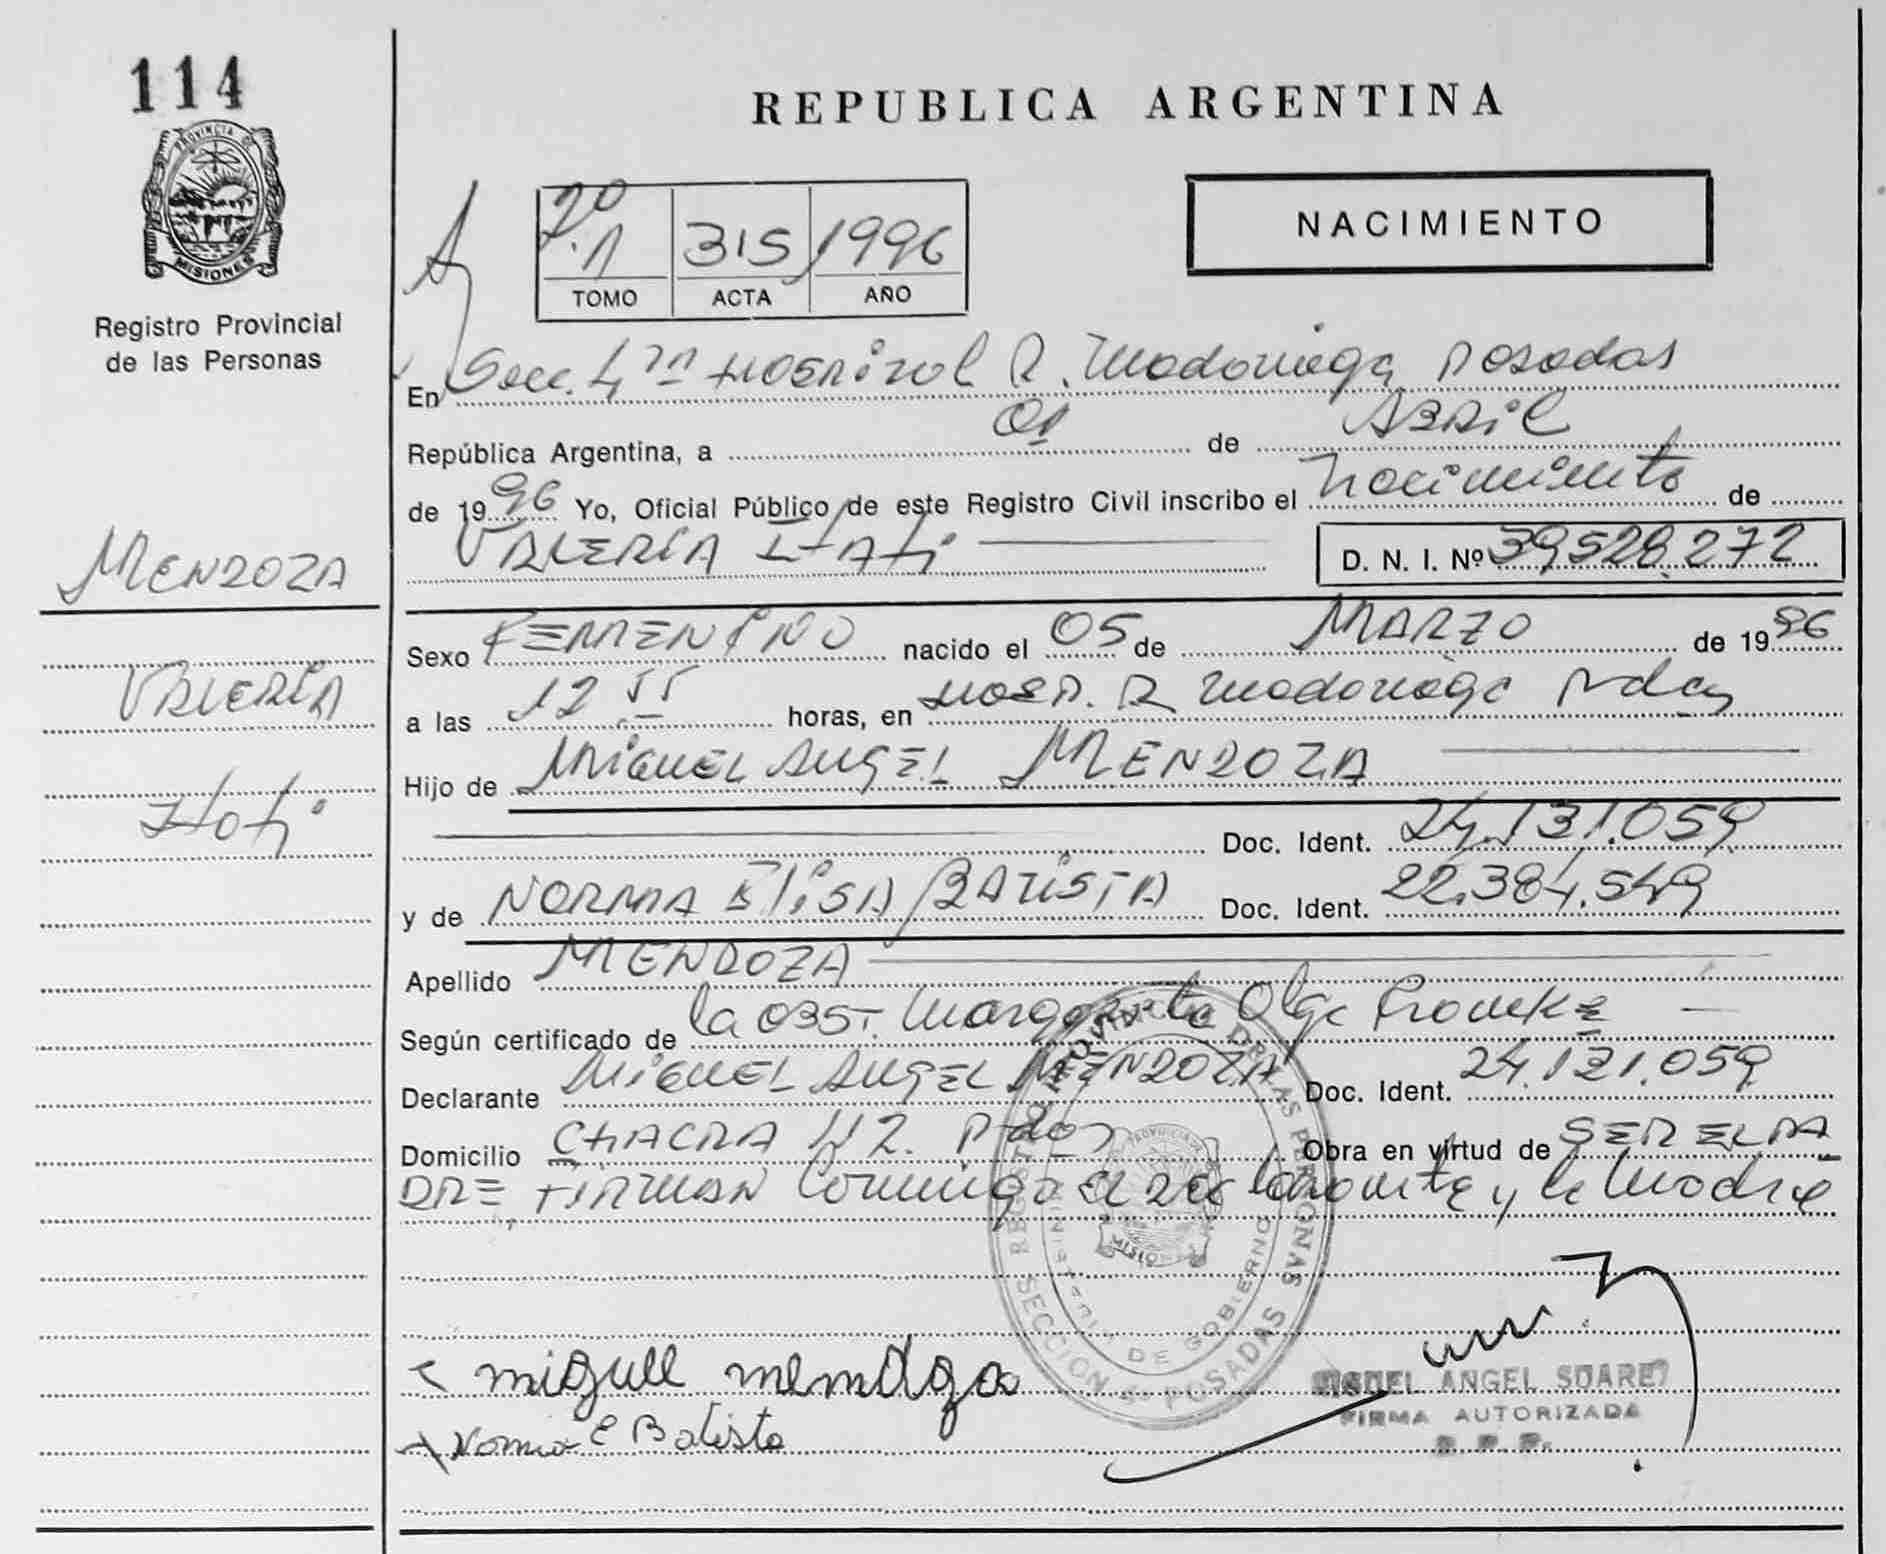 114
PROVINCIA DE
MISIONES
Registro Provincial
de las Personas
MENDOZA
VALERIA
Itatí
REPUBLICA ARGENTINA
NACIMIENTO
2º
T.1 315 1996
TOMO ACTA AÑO
En Secc. 4ta Hospital R. Madariaga Posadas
República Argentina, a 01 de ABRIL
de 1996 Yo, Oficial Público de este Registro Civil inscribo el Nacimiento de
VALERIA ItAtí D. N. I. Nº 39.528.272
Sexo FEMENINO nacido el 05 de MARZO de 1996
a las 12 55 horas, en HOSP. R Madariaga Pdas
Hijo de MIGUEL ANGEL MENDOZA
Doc. Ident. 24.131.059
y de NORMA ELISA BATISTA Doc. Ident. 22.384.549
Apellido MENDOZA
Según certificado de la OBST. Margarita Olga
Declarante MIGUEL ANGEL MENDOZA Doc. Ident. 24.131.059
Domicilio CHACRA 42. Pdas Obra en virtud de SER EL PA
DRE, FIRMAN Conmigo el declarante y la Madre
REGISTRO PROVINCIAL DE LAS PERSONAS
MINISTERIO DE GOBIERNO
PROVINCIA DE
MISIONES
SECCION POSADAS
miguel mendoza
Norma E Batista
MIGUEL ANGEL SUAREZ
FIRMA AUTORIZADA
R. P. P.